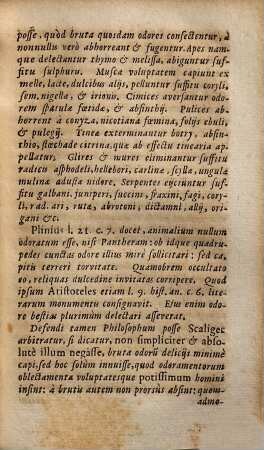 posse, quòd bruta quosdam odores consectentur, à
nonnullis verò abhorreant & fugentur. Apes nam-
que delectantur thymo & melissa, abiguntur suf-
fitu sulphuris. Muscæ voluptatem capiunt ex
melle, lacte, dulcibus alijs, pelluntur suffitu coryli,
sem. nigellæ, & irionis. Cimices aversantur odo-
rem spatulæ fœtidæ, & absinthij. Pulices abhor-
rent à conyza, nicotiana fœmina, folijs ebuli,
& pulegij. Tineæ exterminantur botry, absin-
thio, stœchade citrina, quæ ab effectu tinearia ap-
pellatur. Glires & mures eliminantur suffitu
radicis asphodeli, hellebori, carlinæ, scyllæ, ungulæ
mulinæ adustæ nidore. Serpentes ejiciuntur suf-
fitu galbani, juniperi, succini, fraxini, fagi, cory-
li, rad. ari, rutæ, abrotoni, dictamni, allij, ori-
gani &c.
Plinius l. 21. c. 7. docet, animalium nullum
odoratum esse, nisi Pantheram: ob idque quadru-
pedes cunctas odore illius mirè sollicitari: sed ca-
pitis terreri torvitate. Quamobrem occultato
eo, reliquas dulcedine invitatas corripere. Quod
ipsum Aristoteles etiam l. 9. hist. an. c. 6. lite-
rarum monumentis consignavit. Ejus enim odo-
re bestias plurimùm delectari asseverat.
Defendi tamen Philosophum posse Scaliger
arbitratur, si dicatur, non simpliciter & abso-
lutè illum negâsse, bruta odorũ delicijs minimè
capi, sed hoc solùm innuisse, quod odoramentorum
oblectamenta voluptatesque potissimùm homini
insint: à brutis autem non prorsus absint: quem-
admo-